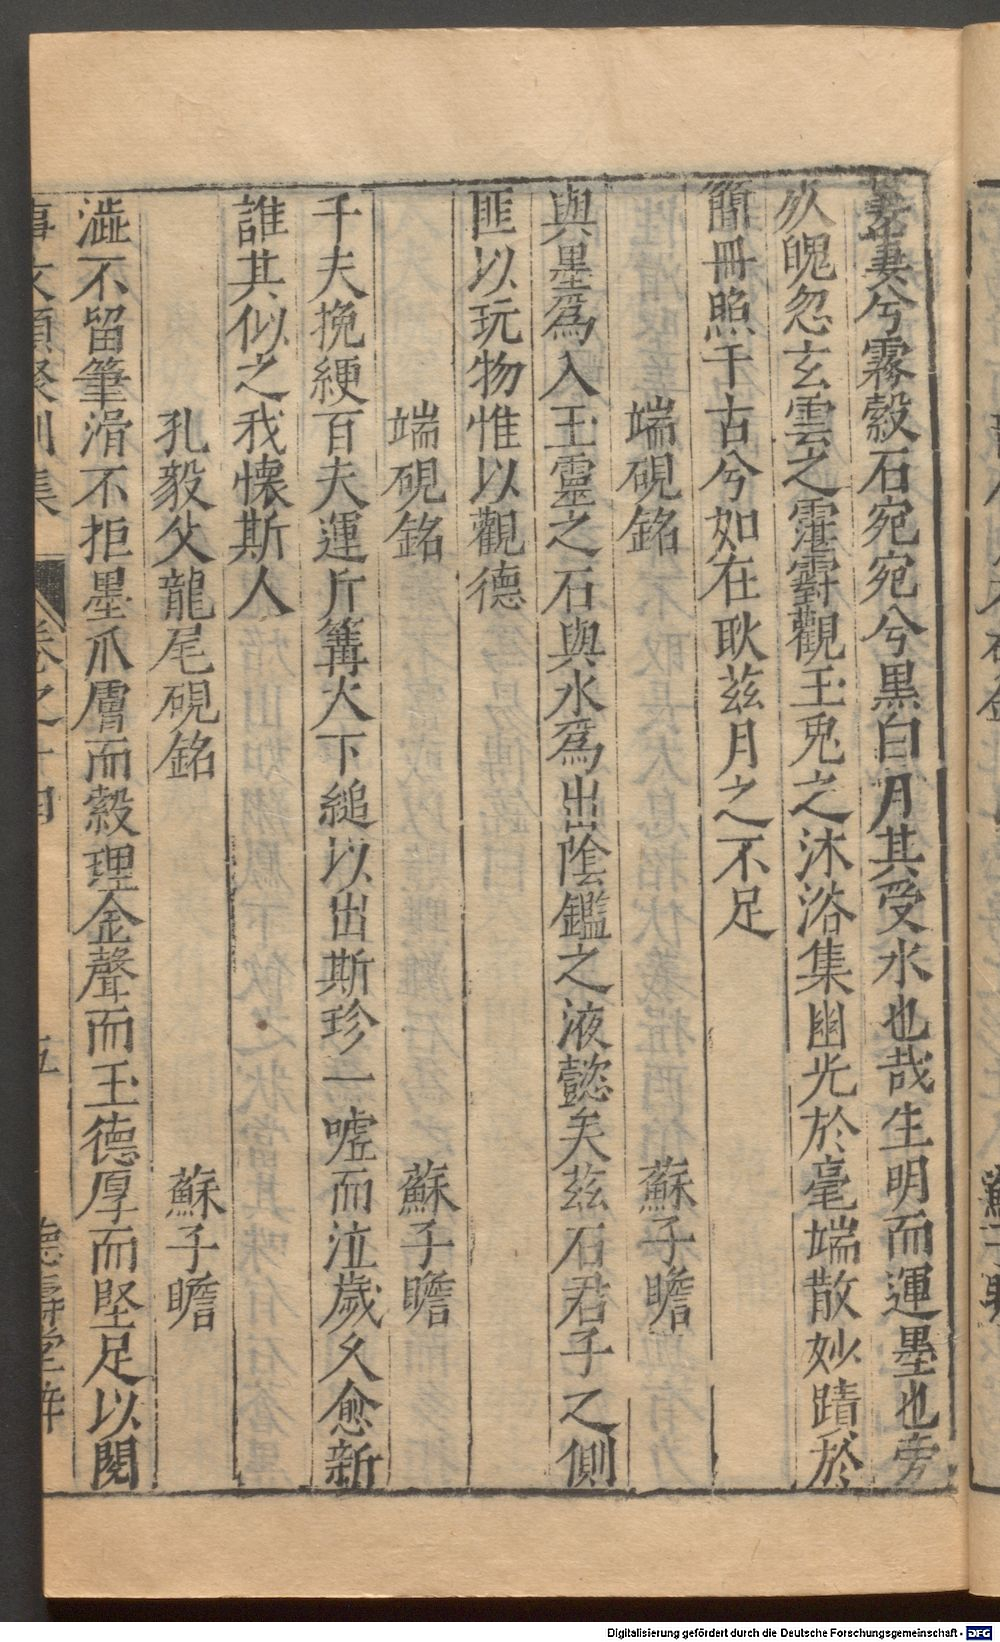 萋萋兮霧縠石宛宛兮黒白月其受水也哉生明而運墨也旁
死魄忽玄雲之霮䨴觀玉兎之沐浴集幽光於毫端散妙蹟於
簡冊照千古兮如在耿茲月之不足
端硯銘 蘇子瞻
與墨爲入玉靈之石與水爲出陰鑑之液懿矣茲石君子之側
匪以玩物惟以觀德
端硯銘 蘇子瞻
千夫挽綆百夫運斤篝火下縋以出斯珍一噓而泣歲久愈新
誰其似之我懷斯人
孔毅父龍尾硯銘 蘇子瞻
澁不留筆滑不拒墨爪膚而縠理金聲而玉德厚而堅足以閱
事文類聚別集 卷之十四 五 德壽堂梓
Digitalisierung gefördert durch die Deutsche Forschungsgemeinschaft - DFG